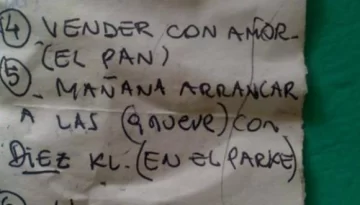 ④ VENDER CON AMOR-
(EL PAN)
⑤ - MAÑANA ARRANCAR
A LAS (9 NUEVE) CON
DIEZ KL: (EN EL PARKE)